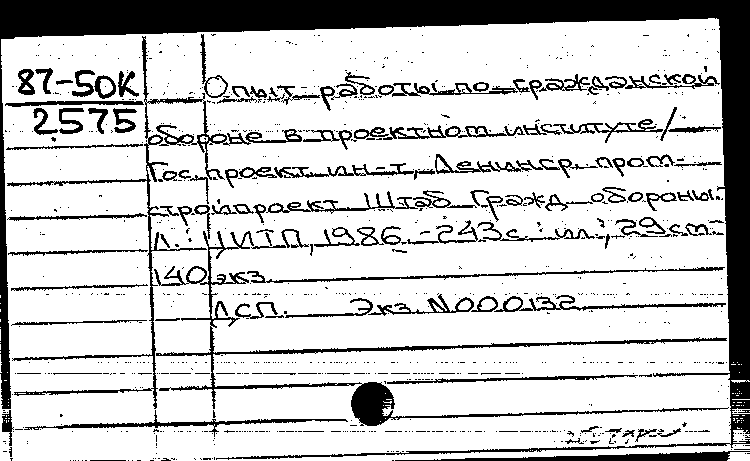 87-50К
2575
Опыт работы по гражданской
обороне в проектном институте/
Гос. проект ин-т, Ленингр. пром-
стройпроект Штаб Гражд. обороны.
Л.: ЦИТП, 1986. - 243с.: ил.; 29см-
140 экз.
ДСП. Экз. N000132